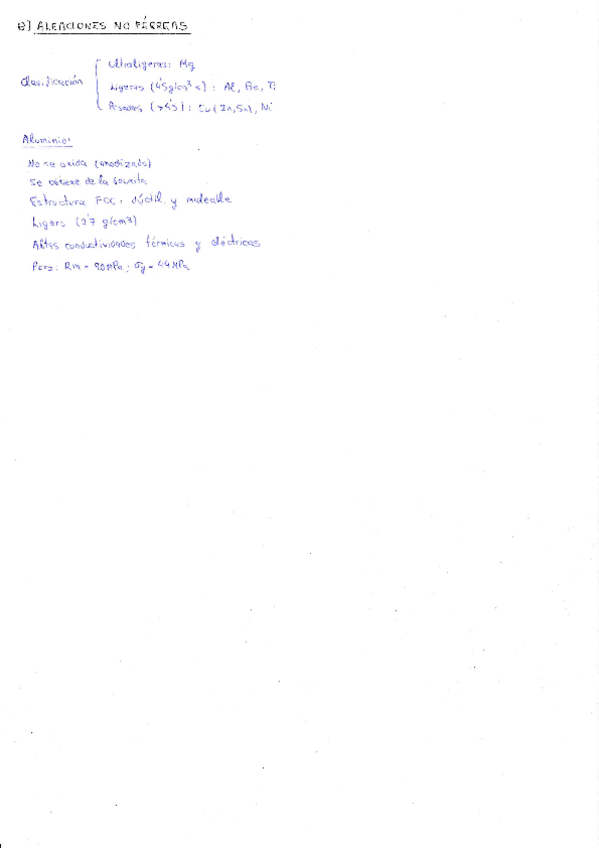 B) ALEACIONES NO FÉRREAS
Clasificación
Ultraligeras: Mg
Ligeras (4'5g/cm³ <) : Al, Be, Ti
Pesadas (>4'5) : Cu (Zn, Sn), Ni
Aluminio:
No se oxida (anodizado)
Se obtiene de la bauxita
Estructura FCC: dúctil y maleable
Ligero (2'7 g/cm3)
Altas conductividades térmicas y eléctricas
Pero: Rm = 90MPa ; σy = 44MPa